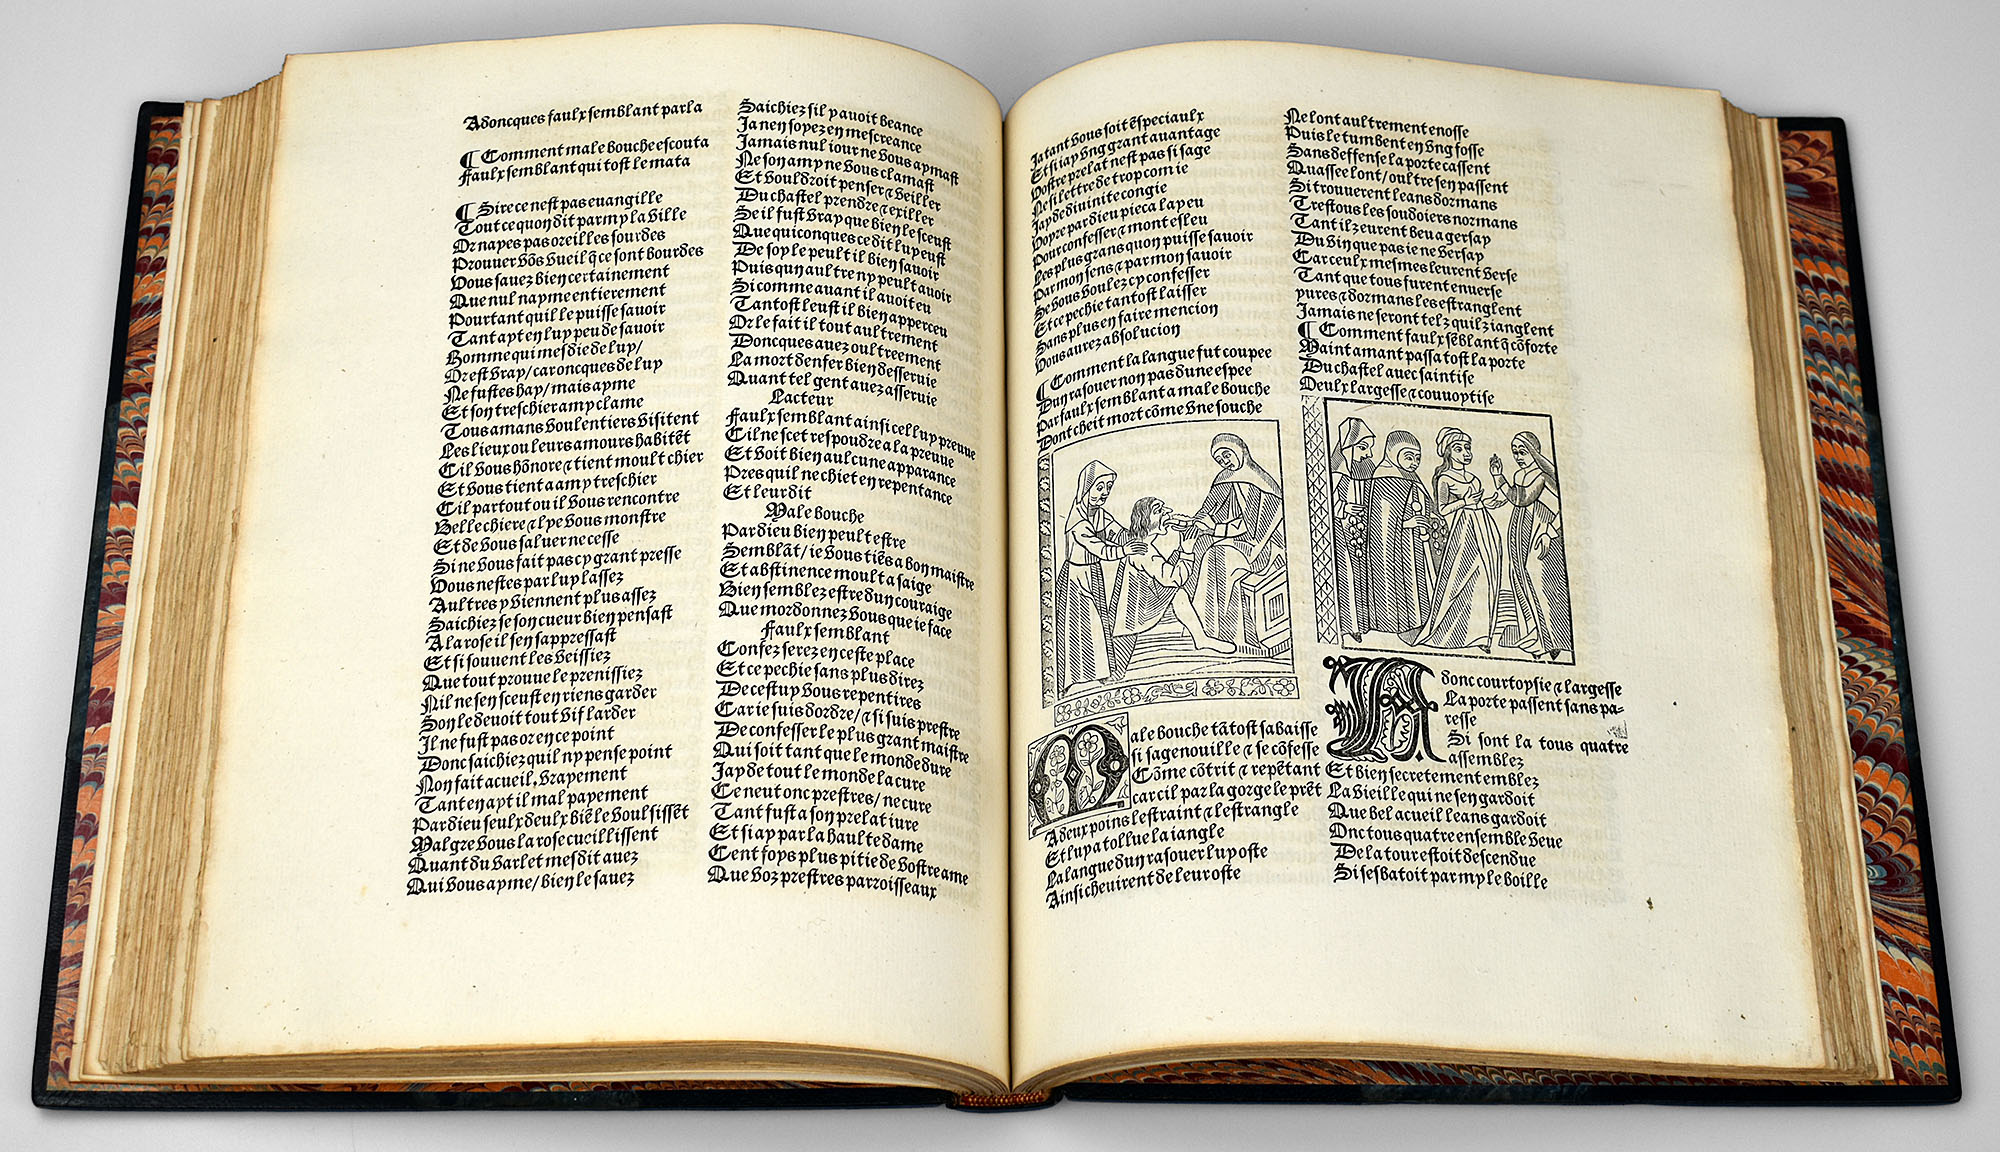 Adoncques faulx semblant parla
¶ Comment male bouche escouta
Faulx semblant qui tost le mata
¶ Sire ce nest pas euangille
Tout ce quon dit parmy la ville
Or nayes pas oreilles sourdes
Prouuer võs vueil q̃ ce sont bourdes
Vous sauez bien certainement
Que nul nayme entierement
Pourtant quil le puisse sauoir
Tant ayt en luy peu de sauoir
Homme qui mesdie de luy/
Or est vray/ car oncques de luy
Ne fustes hay/ mais ayme
Et son treschier amy clame
Tous amans voulentiers visitent
Les lieux ou leurs amours habitẽt
Cil vous hõnore ⁊ tient moult chier
Et vous tient a amy treschier
Cil partout ou il vous rencontre
Belle chiere ⁊ lye vous monstre
Et de vous saluer ne cesse
Si ne vous fait pas cy grant presse
Vous nestes par luy lassez
Aultres y viennent plus assez
Saichiez se son cueur bien pensast
A la rose il sen sappressast
Et si souuent les veissiez
Que tout prouue le prenissiez
Nil ne sen sceust en riens garder
Son le deuoit tout vif larder
Il ne fust pas or en ce point
Donc saichiez quil ny pense point
Non fait acueil, vrayement
Tant en ayt il mal payement
Par dieu seulx deulx biẽ le voulsissẽt
Malgre vous la rose cueillissent
Quant du varlet mesdit auez
Qui vous ayme/ bien le sauez
Saichiez sil y auoit beance
Ja nen soyez en mescreance
Jamais nul iour ne vous aymast
Ne son amy ne vous clamast
Et vouldroit penser ⁊ veiller
Du chastel prendre ⁊ exiller
Se il fust vray que bien le sceust
Que qui conques ce dit luy eust
De soy le peult il bien sauoir
Puis qun aultre ny peult auoir
Si comme auant il auoit eu
Tantost leust il bien apperceu
Or le fait il tout aultrement
Doncques auez oultreement
La mort denfer bien desseruie
Quant tel gent auez asseruie
Lacteur
Faulx semblant ainsi celluy preuue
Cil ne scet respondre a la preuue
Et voit bien aulcune apparance
Pres quil ne chiet en repentance
Et leur dit
Male bouche
Par dieu bien peult estre
Semblãt/ ie vous tiẽs a bon maistre
Et abstinence moult a saige
Bien semblez estre dun couraige
Que mordonnez vous que ie face
Faulx semblant
Confez serez en ceste place
Et ce pechie sans plus direz
De cestuy vous repentires
Car ie suis dordre/ ⁊ si suis prestre
De confesser le plus grant maistre
Qui soit tant que le monde dure
Jay de tout le monde la cure
Ce neut onc prestres/ ne cure
Tant fust a son prelat iure
Et si ay par la haulte dame
Cent foys plus pitie de vostre ame
Que voz prestres parroisseaux
Ja tant vous soit ẽspeciaulx
Et si iay vng grant auantage
Vostre prelat nest pas si sage
Ne si lettre de trop com ie
Jay de diuinite congie
Voyre par dieu pieca lay eu
Pour confesser ⁊ mont esleu
Les plus grans quon puisse sauoir
Par mon sens ⁊ par mon sauoir
Se vous voulez cy confesser
Et ce pechie tantost laisser
Sans plus en faire mencion
Vous aurez absolucion
¶ Comment la langue fut coupee
Dun rasouer non pas dune espee
Par faulx semblant a male bouche
Dont cheit mort cõme vne souche
Male bouche tãtost sabaisse
si sagenouille ⁊ se cõfesse
Cõme cõtrit ⁊ repẽtant
car cil par la gorge le prẽt
A deux poins lestraint ⁊ lestrangle
Et luy a tollue la iangle
La langue dun rasouer luy oste
Ainsi cheuirent de leur oste
Ne lont aultrement enosse
Puis le tumbent en vng fosse
Sans deffense la porte cassent
Quassee lont/ oultre sen passent
Si trouuerent leans dormans
Trestous les soudoiers normans
Tant il zeurent beu a gersay
Du vin que pas ie ne versay
Car ceulx mesmes leurent verse
Tant que tous furent enuerse
yures ⁊ dormans les estranglent
Jamais ne seront telz quilz ianglent
¶ Comment faulx sẽblant q̃ cõforte
Maint amant passa tost la porte
Du chastel auec saintise
Deulx largesse ⁊ couuoytise
Adonc courtoysie ⁊ largesse
La porte passent sans pa-
resse
Si sont la tous quatre
assemblez
Et bien secretement emblez
La vieille qui ne sen gardoit
Que bel acueil leans gardoit
Onc tous quatre ensemble veue
De la tour estoit descendue
Si sesbatoit parmy le voille